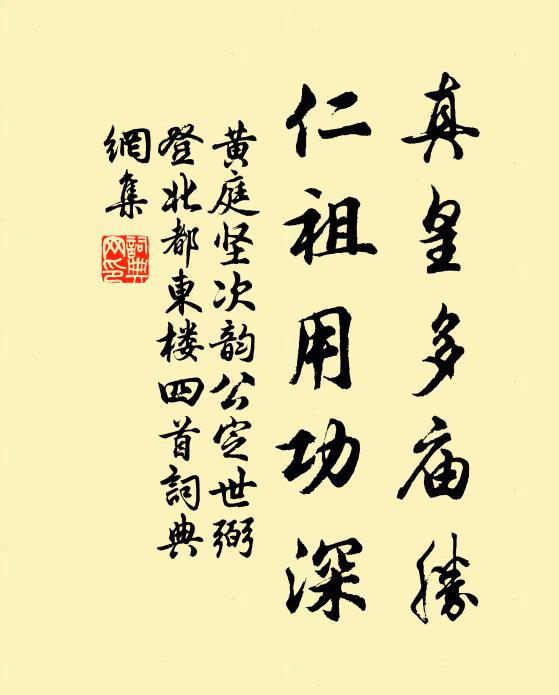 真皇多庙勝
仁祖用功深
黄庭坚次韵公定世弼
登北都東楼四首詞典
網集
詞典网印